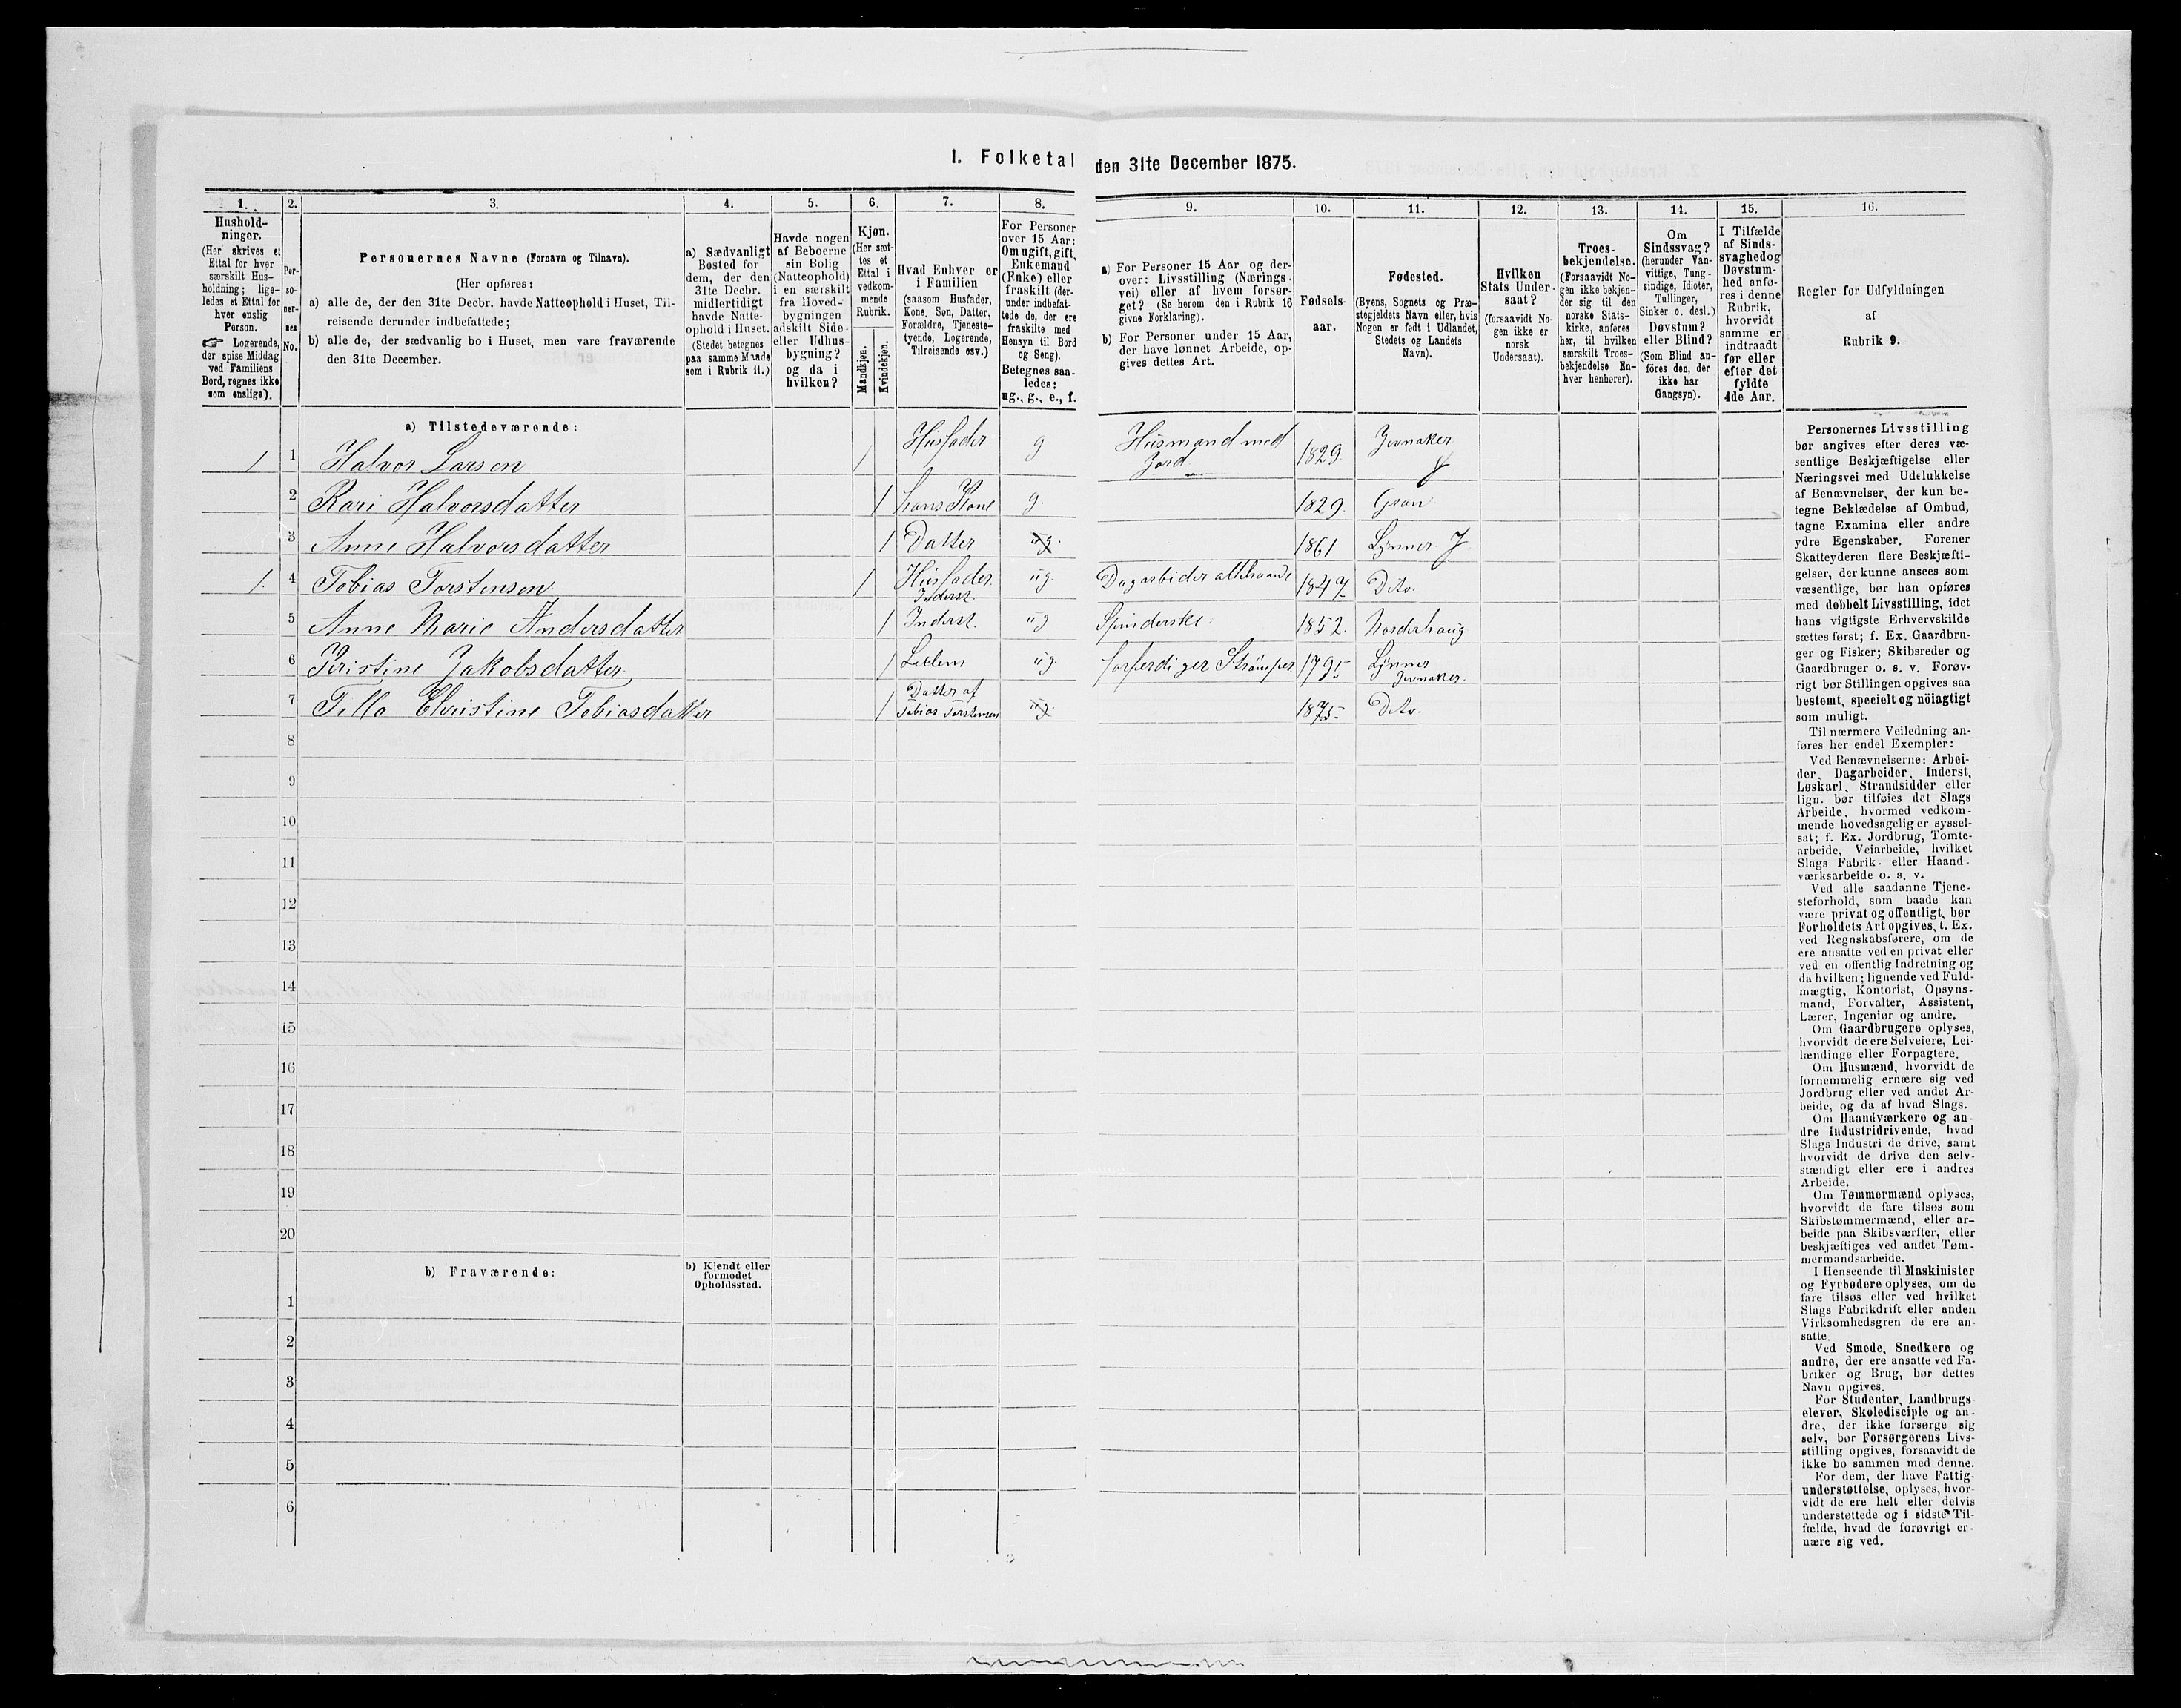 I. Folketal den 31te December 1875.
1.
Hushold-
ninger.
(Her skrives et
Ettal for hver
særskilt Hus-
holdning; lige-
ledes et Ettal for
hver enslig
Person.
☞ Logerende,
der spise Middag
ved Familiens
Bord, regnes ikke
som enslige).
2.
Per-
so-
ner-
nes
No.
3.
Personernes Navne (Fornavn og Tilnavn).
(Her opføres:
a) alle de, der den 31te Decbr. havde Natteophold i Huset, Til-
reisende derunder indbefattede;
b) alle de, der sædvanlig bo i Huset, men vare fraværende
den 31te December.
4.
a) Sædvanligt
Bosted for
dem, der den
31te Decbr.
midlertidigt
havde Natte-
ophold i Huset.
(Stedet betegnes
paa samme Maade
som i Rubrik 11.)
5.
Havde nogen
af Beboerne
sin Bolig
(Natteophold)
i en særskilt
fra Hoved-
bygningen
adskilt Side-
eller Udhus-
bygning?
og da i
hvilken?
6.
Kjøn.
(Her sæt-
tes et
Ettal i
vedkom-
mende
Rubrik.
Mandkjøn.
Kvindekjøn.
7.
Hvad Enhver er
i Familien
(saasom Husfader,
Kone, Søn, Datter,
Forældre, Tjeneste-
tyende, Logerende,
Tilreisende osv.)
8.
For Personer
over 15 Aar:
Om ugift, gift,
Enkemand
(Enke) eller
fraskilt (der-
under indbefat-
tede de, der ere
fraskilte med
Hensyn til Bord
og Seng).
Betegnes saa-
ledes:
ug., g., e., f.
9.
a) For Personer 15 Aar og der-
over: Livsstilling (Nærings-
vei) eller af hvem forsør-
get? (Se herom den i Rubrik 16
givne Forklaring).
b) For Personer under 15 Aar,
der have lønnet Arbeide, op-
gives dettes Art.
10.
Fødsels-
aar.
11.
Fødested.
(Byens, Sognets og Præ-
stegjeldets Navn eller, hvis
Nogen er født i Udlandet,
Stedets og Landets
Navn).
12.
Hvilken
Stats Under-
saat?
(forsaavidt No-
gen ikke er
norsk
Undersaat).
13.
Troes-
bekjendelse.
(Forsaavidt No-
gen ikke bekjen-
der sig til den
norske Stats-
kirke, anføres
her, til hvilken
særskilt Troes-
bekjendelse En-
hver henhører).
14.
Om
Sindssvag?
(herunder Van-
vittige, Tung-
sindige, Idioter,
Tullinger,
Sinker o. desl.)
Døvstum?
eller Blind?
(Som Blind an-
føres den, der
ikke har
Gangsyn).
15.
I Tilfælde
af Sinds-
svaghed og
Døvstum-
hed anfø-
res i denne
Rubrik,
hvorvidt
samme er
indtraadt
før eller
efter det
fyldte
4de Aar.
16.
Regler for Udfyldningen
af
Rubrik 9.
a) Tilstedeværende:
1 1 Halvor Larsen 1 Husfader g Husmand med Jord 1829 Jevnaker
2 Kari Halvorsdatter 1 hans Kone g. 1829. Gran
3 Anne Halvorsdatter 1 Datter ug. 1861 Lynner J
1. 4 Tobias Torstensen 1 Husfader Inderst ug. Dagarbeider allehaande 1847 Dito.
5 Anne Marie Andersdatter 1 Inderst. ug Spinderske 1852. Norderhaug
6 Kristine Jakobsdatter 1 ug. forferdiger Strømper 1795 Lynner Jevnaker.
7 Tilla Christine Tobiasdatter 1 Datter af Tobias Torstensen ug. 1875 Dito.
8
9
10
11
12
13
14
15
16
17
18
19
20
b) Fraværende:
b) Kjendt eller
formodet
Opholdssted.
1
2
3
4
5
6
Personernes Livsstilling
bør angives efter deres væ-
sentlige Beskjæftigelse eller
Næringsvei med Udelukkelse
af Benævnelser, der kun be-
tegne Beklædelse af Ombud,
tagne Examina eller andre
ydre Egenskaber. Forener
Skatteyderen flere Beskjæfti-
gelser, der kunne ansees som
væsentlige, bør han opføres
med dobbelt Livsstilling, idet
hans vigtigste Erhvervskilde
sættes først; f. Ex. Gaardbru-
ger og Fisker; Skibsreder og
Gaardbruger o. s. v. Forøv-
rigt bør Stillingen opgives saa
bestemt, specielt og nöiagtigt
som muligt.
Til nærmere Veiledning an-
føres her endel Exempler:
Ved Benævnelserne: Arbei-
der, Dagarbeider, Inderst,
Løskarl, Strandsidder eller
lign. bør tilføies det Slags
Arbeide, hvormed vedkom-
mende hovedsagelig er syssel-
sat; f. Ex. Jordbrug, Tomte-
arbeide, Veiarbeide, hvilket
Slags Fabrik- eller Haand-
værksarbeide o. s. v.
Ved alle saadanne Tjene-
steforhold, som baade kan
være privat og offentligt, bør
Forholdets Art opgives, t. Ex.
ved Regnskabsførere, om de
ere ansatte ved en privat eller
ved en offentlig Indretning og
da hvilken; lignende ved Fuld-
mægtig, Kontorist, Opsyns-
mand, Forvalter, Assistent,
Lærer, Ingeniør og andre.
Om Gaardbrugere oplyses,
hvorvidt de ere Selveiere, Lei-
lændinge eller Forpagtere.
Om Husmænd, hvorvidt de
fornemmelig ernære sig ved
Jordbrug eller ved andet Ar-
beide, og da af hvad Slags.
Om Haandværkere og an-
dre Industridrivende, hvad
Slags Industri de drive, samt
hvorvidt de drive den selv-
stændigt eller ere i andres
Arbeide.
Om Tømmermænd oplyses,
hvorvidt de fare tilsøs som
Skibstømmermænd, eller ar-
beide paa Skibsværfter, eller
beskjæftiges ved andet Tøm-
mermandsarbeide.
I Henseende til Maskinister
og Fyrbødere oplyses, om de
fare tilsøs eller ved hvilket
Slags Fabrikdrift eller anden
Virksomhedsgren de ere an-
satte.
Ved Smede, Snedkere og
andre, der ere ansatte ved Fa-
briker og Brug, bør dettes
Navn opgives.
For Studenter, Landbrugs-
elever, Skoledisciple og an-
dre, der ikke forsørge sig
selv, bør Forsørgerens Livs-
stilling opgives, forsaavidt de
ikke bo sammen med denne.
For dem, der have Fattig-
understøttelse, oplyses, hvor-
vidt de ere helt eller delvis
understøttede og i sidste Til-
fælde, hvad de forøvrigt er-
nære sig ved.